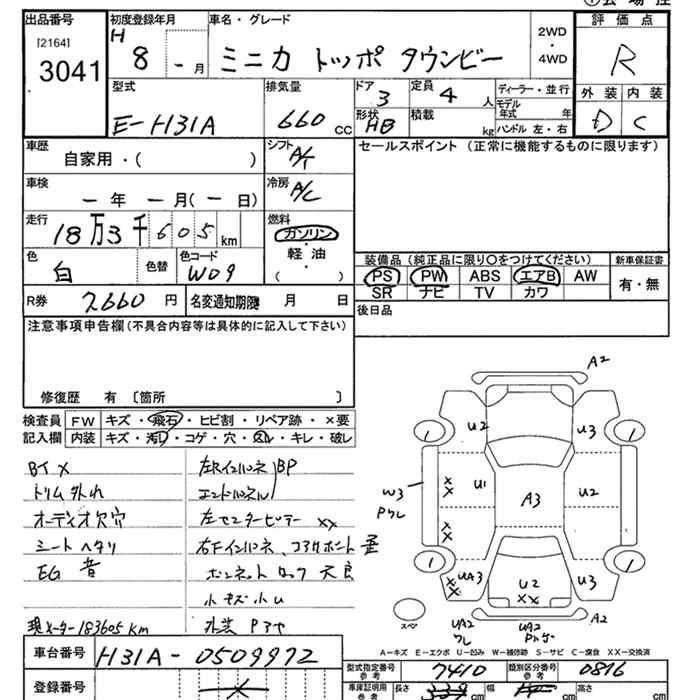 出品番号
[2164]
3041
初度登録年月
H
8 - 月
車名・グレード
ミニカ トッポ タウンビー
2WD
・
4WD
評価点
R
外装 内装
D C
型式
E-H31A
排気量
660 cc
ドア
3
定員
4 人
形状
HB
積載
kg
ディーラー・並行
モデル
年式 年
ハンドル 左・右
車歴
自家用・( )
シフト
A/T
セールスポイント (正常に機能するものに限ります)
車検
- 年 - 月(- 日)
冷房
A/C
走行
18万3千605km
燃料
ガソリン
・
軽油
( )
色
白
色替
色コード
W09
装備品 (純正品に限り○をつけてください)
新車保証書
PS PW ABS エアB AW
SR ナビ TV カワ
有・無
R券
2660 円
名変通知期限 月 日
後日品
注意事項申告欄 (不具合内容等は具体的に記入して下さい)
修復歴 有 〔箇所 〕
検査員
記入欄
FW キズ・飛石・ヒビ割・リペア跡・×要
内装 キズ・汚れ・コゲ・穴・スレ・キレ・破レ
BTX
トリム外れ
オーディオ欠穴
シートヘタリ
EG 音
現メーター183605km
左Rインパネ BP
エンドパネル
左センターピラー ××
右Fインパネ、コアサポート 歪
ボンネットロック不良
小キズ小U
外装Pアセ
A2
U2
U3
1
1
W3
Pワレ
××
U1
A3
U2
××
1
1
UA3
××
U2
××
U3
スペア
UA2
ワレ
UA2
A2
A-キズ E-エクボ U-凹み W-補修跡 S-サビ C-腐食 XX-交換済
車台番号
H31A-0509972
型式指定番号
参考
7410
類別区分番号
参考
0816
登録番号
車庫証明用
参考
長さ
cm
幅
cm
高さ
cm